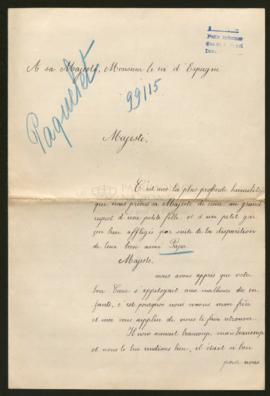 A sa Majesté, Monsieur le roi d'Espagne
Paquetet
99115
Majesté,
C'est avec la plus profonde humilité
que nous prions sa Majesté de venir au grand
d'une petite fille et d'un petit gar
çon bien affligés par suite de la disparition
de leur bon ami Pajou
Majesté,
nous avons appris que votre
bon Cœur s'appitoyant aux malheurs des en
fants, c'est pourquoi nous venons mon frère
et moi vous supplier de nous le faire retrouver.
Il nous aimait beaucoup, mais beaucoup
et nous le lui rendions bien, il était si bon
pour nous